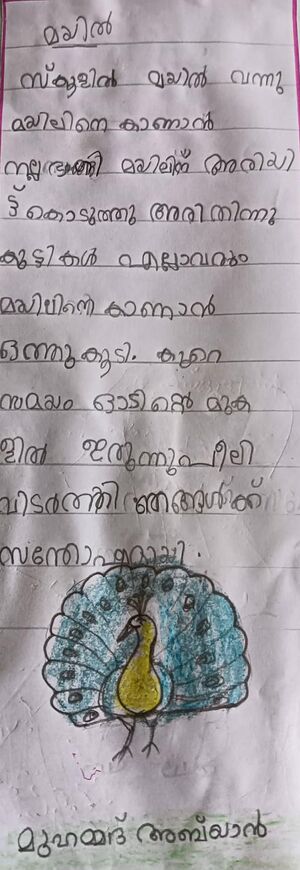 മയിൽ
സ്കൂളിൽ മയിൽ വന്നു
മയിലിനെ കാണാൻ
നല്ല ഭംഗി മയിലിന് അരിയി
ട്ട് കൊടുത്തു അരി തിന്നു
കുട്ടികൾ എല്ലാവരും
മയിലിനെ കാണാൻ
ഒത്തുകൂടി. കുറെ
സമയം ഓടിന്റെ മുക
ളിൽ ഇരുന്നു പീലി
വിടർത്തി ഞങ്ങൾക്ക്
സന്തോഷമായി.
മുഹമ്മദ് അബ്‌യാൻ